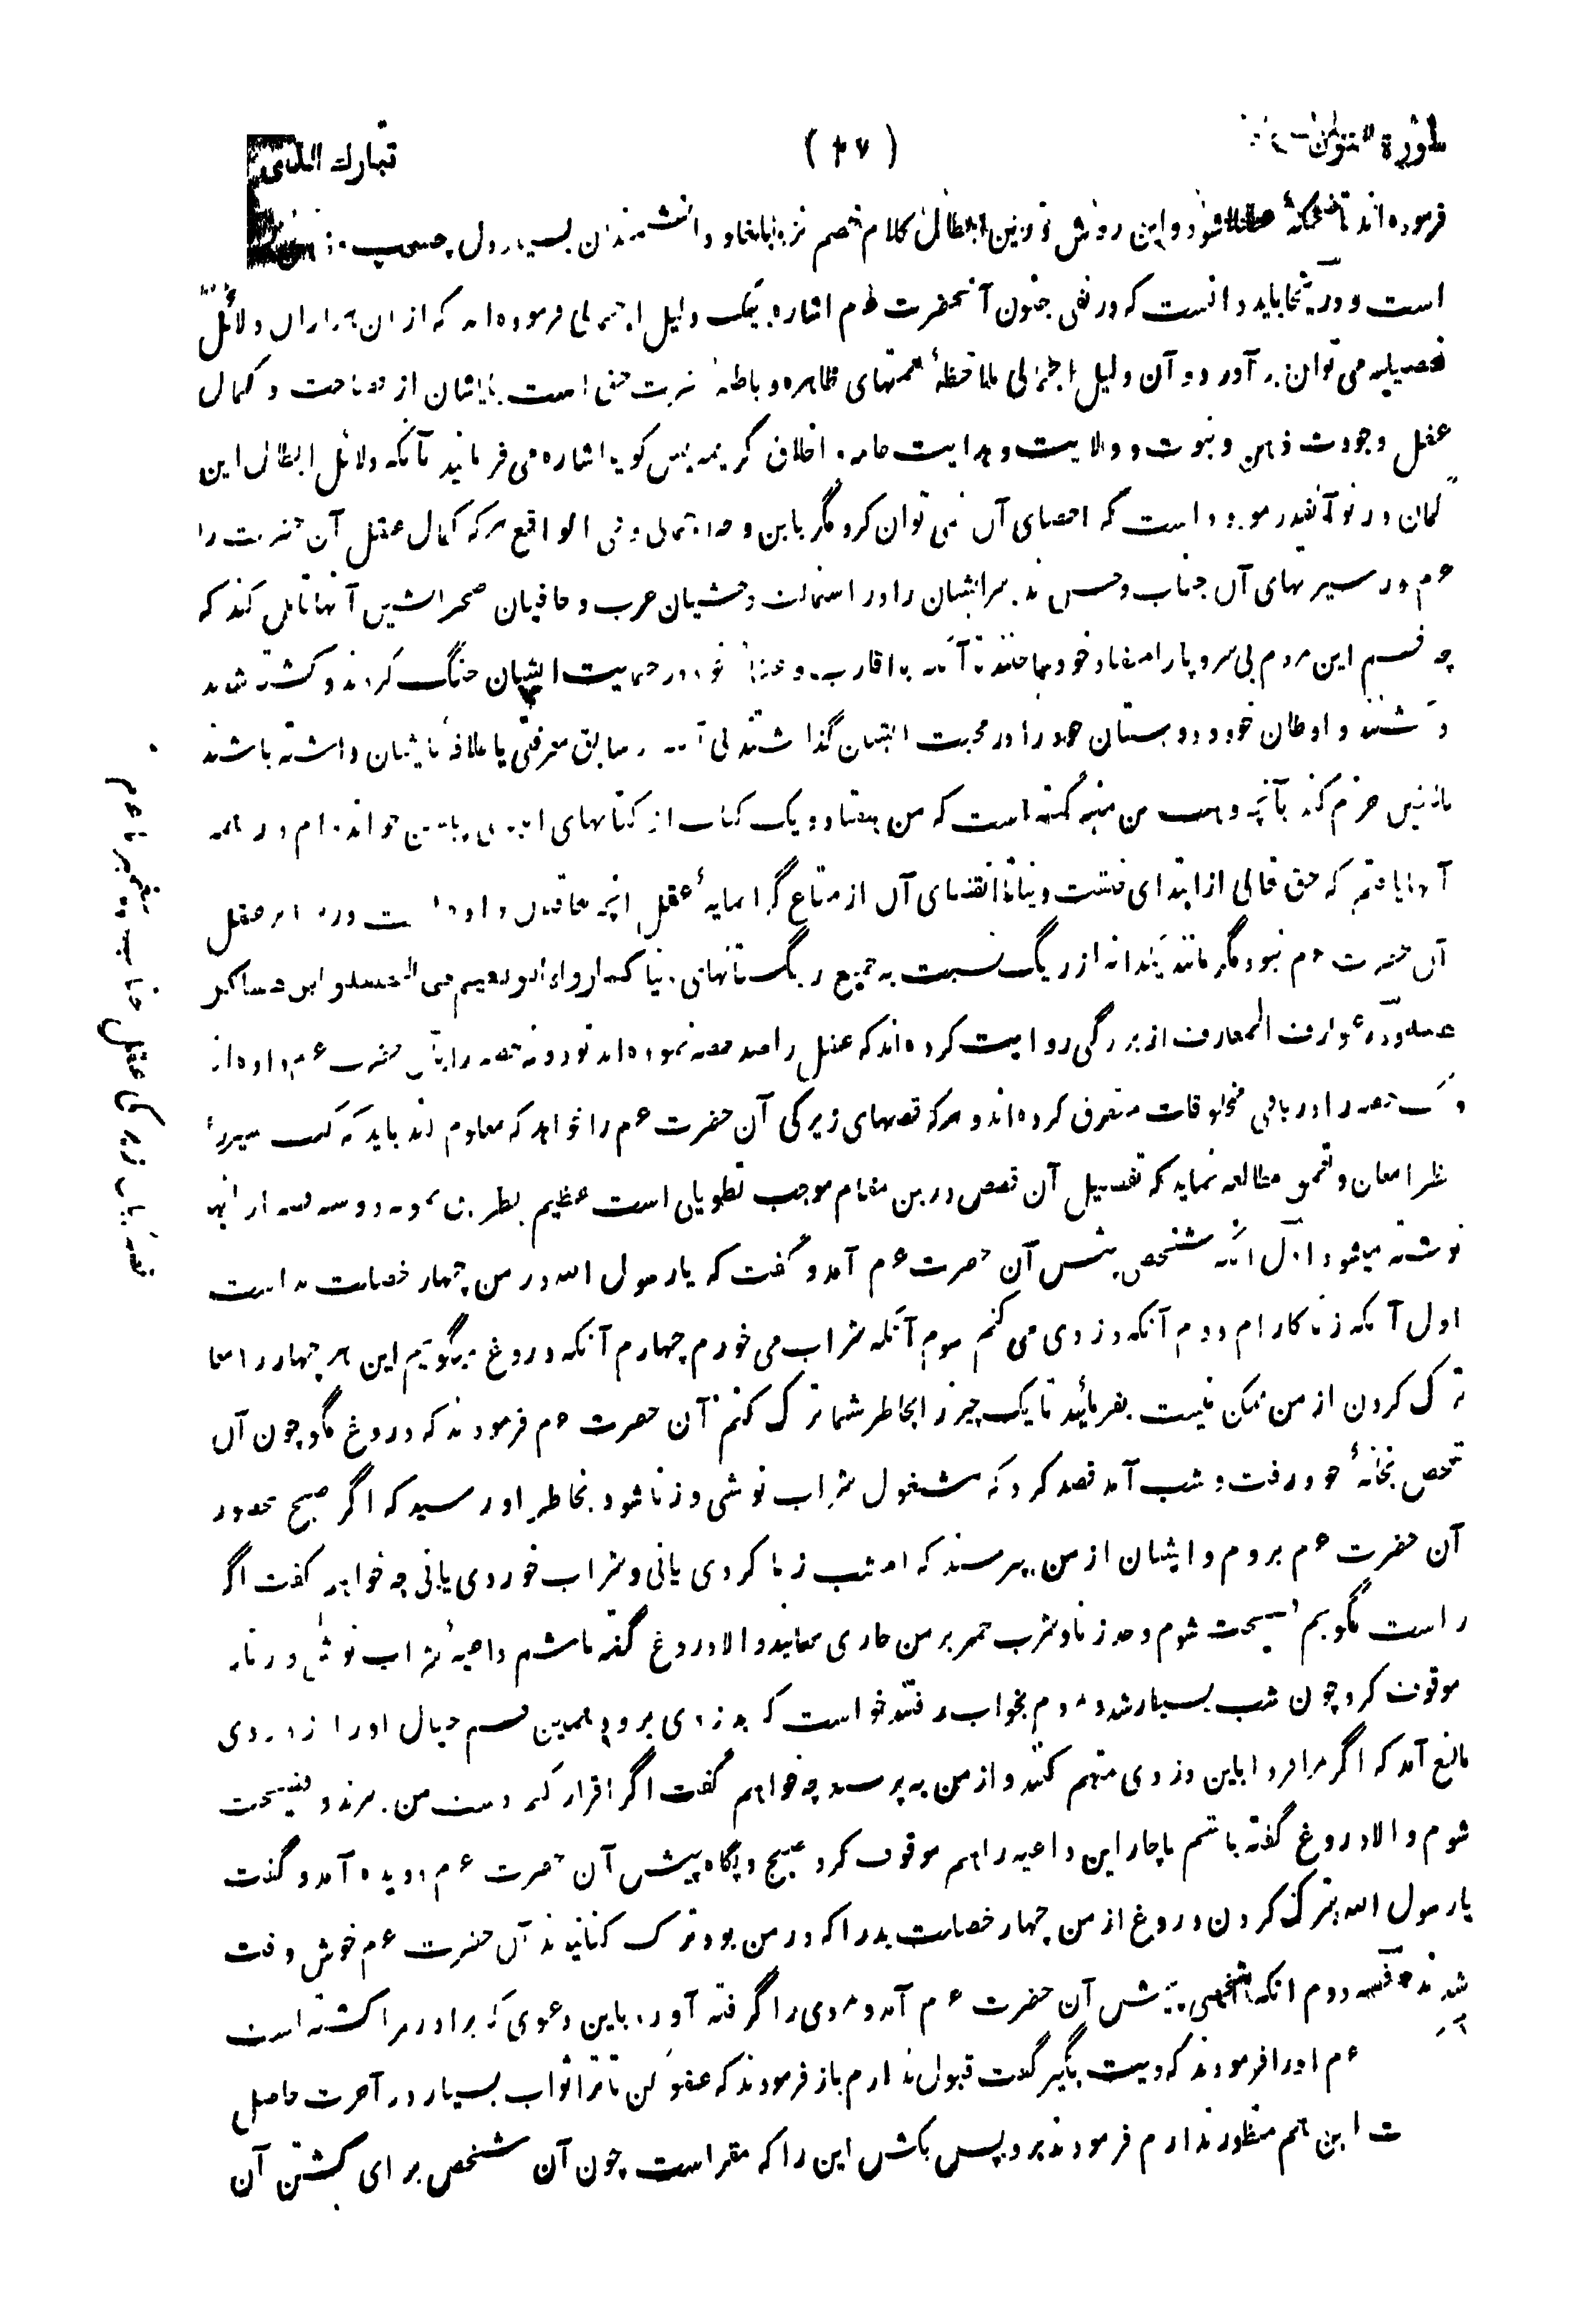 سورة
( ۴۷ )
تبارك الذی
فرموده اند تا شود و این روش در ابطال کلام خصم نزد و دانشمندان بسیار دل چسپ
است و در ینجا باید دانست که در نفی جنون آنحضرت اشاره بیک دلیل اجمالی فرموده اند که از ان هزاران دلائل
تفصیلیه می توان بر آورد و آن دلیل اجمالی ملاحظهٔ نعمتهای ظاهره و باطنه است از فصاحت و کمال
عقل وجودت ذهن و نبوت و ولایت و هدایت عامه و اخلاق کریمه پس گویا اشاره می فرمایند تا آنکه دلائل ابطال این
گمان در تو آنقدر موجود است که احصای آن نمی توان کرد مگر باین وجه اجمالی و فی الواقع هر که کمال عقل آن حضرت را
ع م در سیرتهای آن جناب و حسن تدبیر ایشان را در استمالت وحشیان عرب و جافیان صحرانشین آنها تامل کند که
چه قسم این مردم بی سرو پا را منقاد خود ساختند تا آنکه با اقارب و خود در حمایت ایشان جنگ کردند و کشته شدند
و کشتند و اوطان خود و دوستان خود را در محبت ایشان گذاشتند بی آنکه سابق معرفتی یا علاقه با ایشان داشته باشند
بالیقین جزم کند بآنچه وهب بن منبه گفته است که من هفتاد و یک کتاب از کتابهای خوانده ام در همه
آنها یافتم که حق تعالی از ابتدای خلقت دنیا تا انقضای آن از متاع گرانمایهٔ عقل آنچه داده است در عقل
آن حضرت ع م نبود مگر مانند یکدانه از ریگ نسبت به جمیع ریگستانهای دنیا کما رواه ابو نعیم فی الحلیة و ابن عساکر
و در عوارف المعارف از بزرگی روایت کرده اند که عقل را صد حصه نموده اند نود و نه حصه را بآن حضرت ع م داده اند
و یک حصه را در باقی مخلوقات متفرق کرده اند و هر که قصهای زیرکی آن حضرت ع م را خواهد که معلوم کند باید که کتب سیر را
بنظر امعان و تعمق مطالعه نماید که تفصیل آن قصص در ین مقام موجب تطویلی است عظیم بطریق نمونه دو سه قصه از انها
نوشته میشود اول آنکه شخصی پیش آن حضرت ع م آمد و گفت که یا رسول الله در من چهار خصلت بد است
اول آنکه زنا کار ام دوم آنکه دزدی می کنم سوم آنکه شراب می خورم چهارم آنکه دروغ میگویم این هر چهار را معا
ترک کردن از من ممکن نیست بفرمائید تا یک چیز را بخاطر شما ترک کنم آن حضرت ع م فرمودند که دروغ مگو چون آن
شخص بخانهٔ خود رفت و شب آمد قصد کرد که مشغول شراب نوشی و زنا شود بخاطر او رسید که اگر صبح بحضور
آن حضرت ع م بروم و ایشان از من بپرسند که امشب زنا کردی یا نی و شراب خوردی یا نی چه خواهم گفت اگر
راست بگویم فضیحت شوم و حد زنا و شرب خمر بر من جاری نمایند و الا دروغ گفته باشم داعیهٔ شراب نوشی و زنا
موقوف کرد چون شب بسیار شد و مردم بخواب رفتند خواست که بدزدی برود همین قسم خیال او را از دزدی
مانع آمد که اگر مرا فردا باین دزدی متهم کنند و از من به پرسند چه خواهم گفت اگر اقرار کنم دست من ببرند و فضیحت
شوم و الا دروغ گفته باشم ناچار این داعیه را هم موقوف کرد صبح و پگاه پیش آن حضرت ع م دویده آمد و گفت
یا رسول الله بترک کردن دروغ از من چهار خصلت بد را که در من بود ترک کنانیدند آن حضرت ع م خوش وقت
شدند قصه دوم آنکه شخصی پیش آن حضرت ع م آمد و مردی را گرفته آورد باین دعوی که برادر مرا کشته است
ع م او را فرمودند که دیت بگیر گفت قبول ندارم باز فرمودند که عفو کن تا ترا ثواب بسیار در آخرت حاصل
این هم منظور ندارم فرمودند برو پس بکش این را که مقر است چون آن شخص برای کشتن آن
قصه زیرکی عقل جناب پیغمبر ما ع م